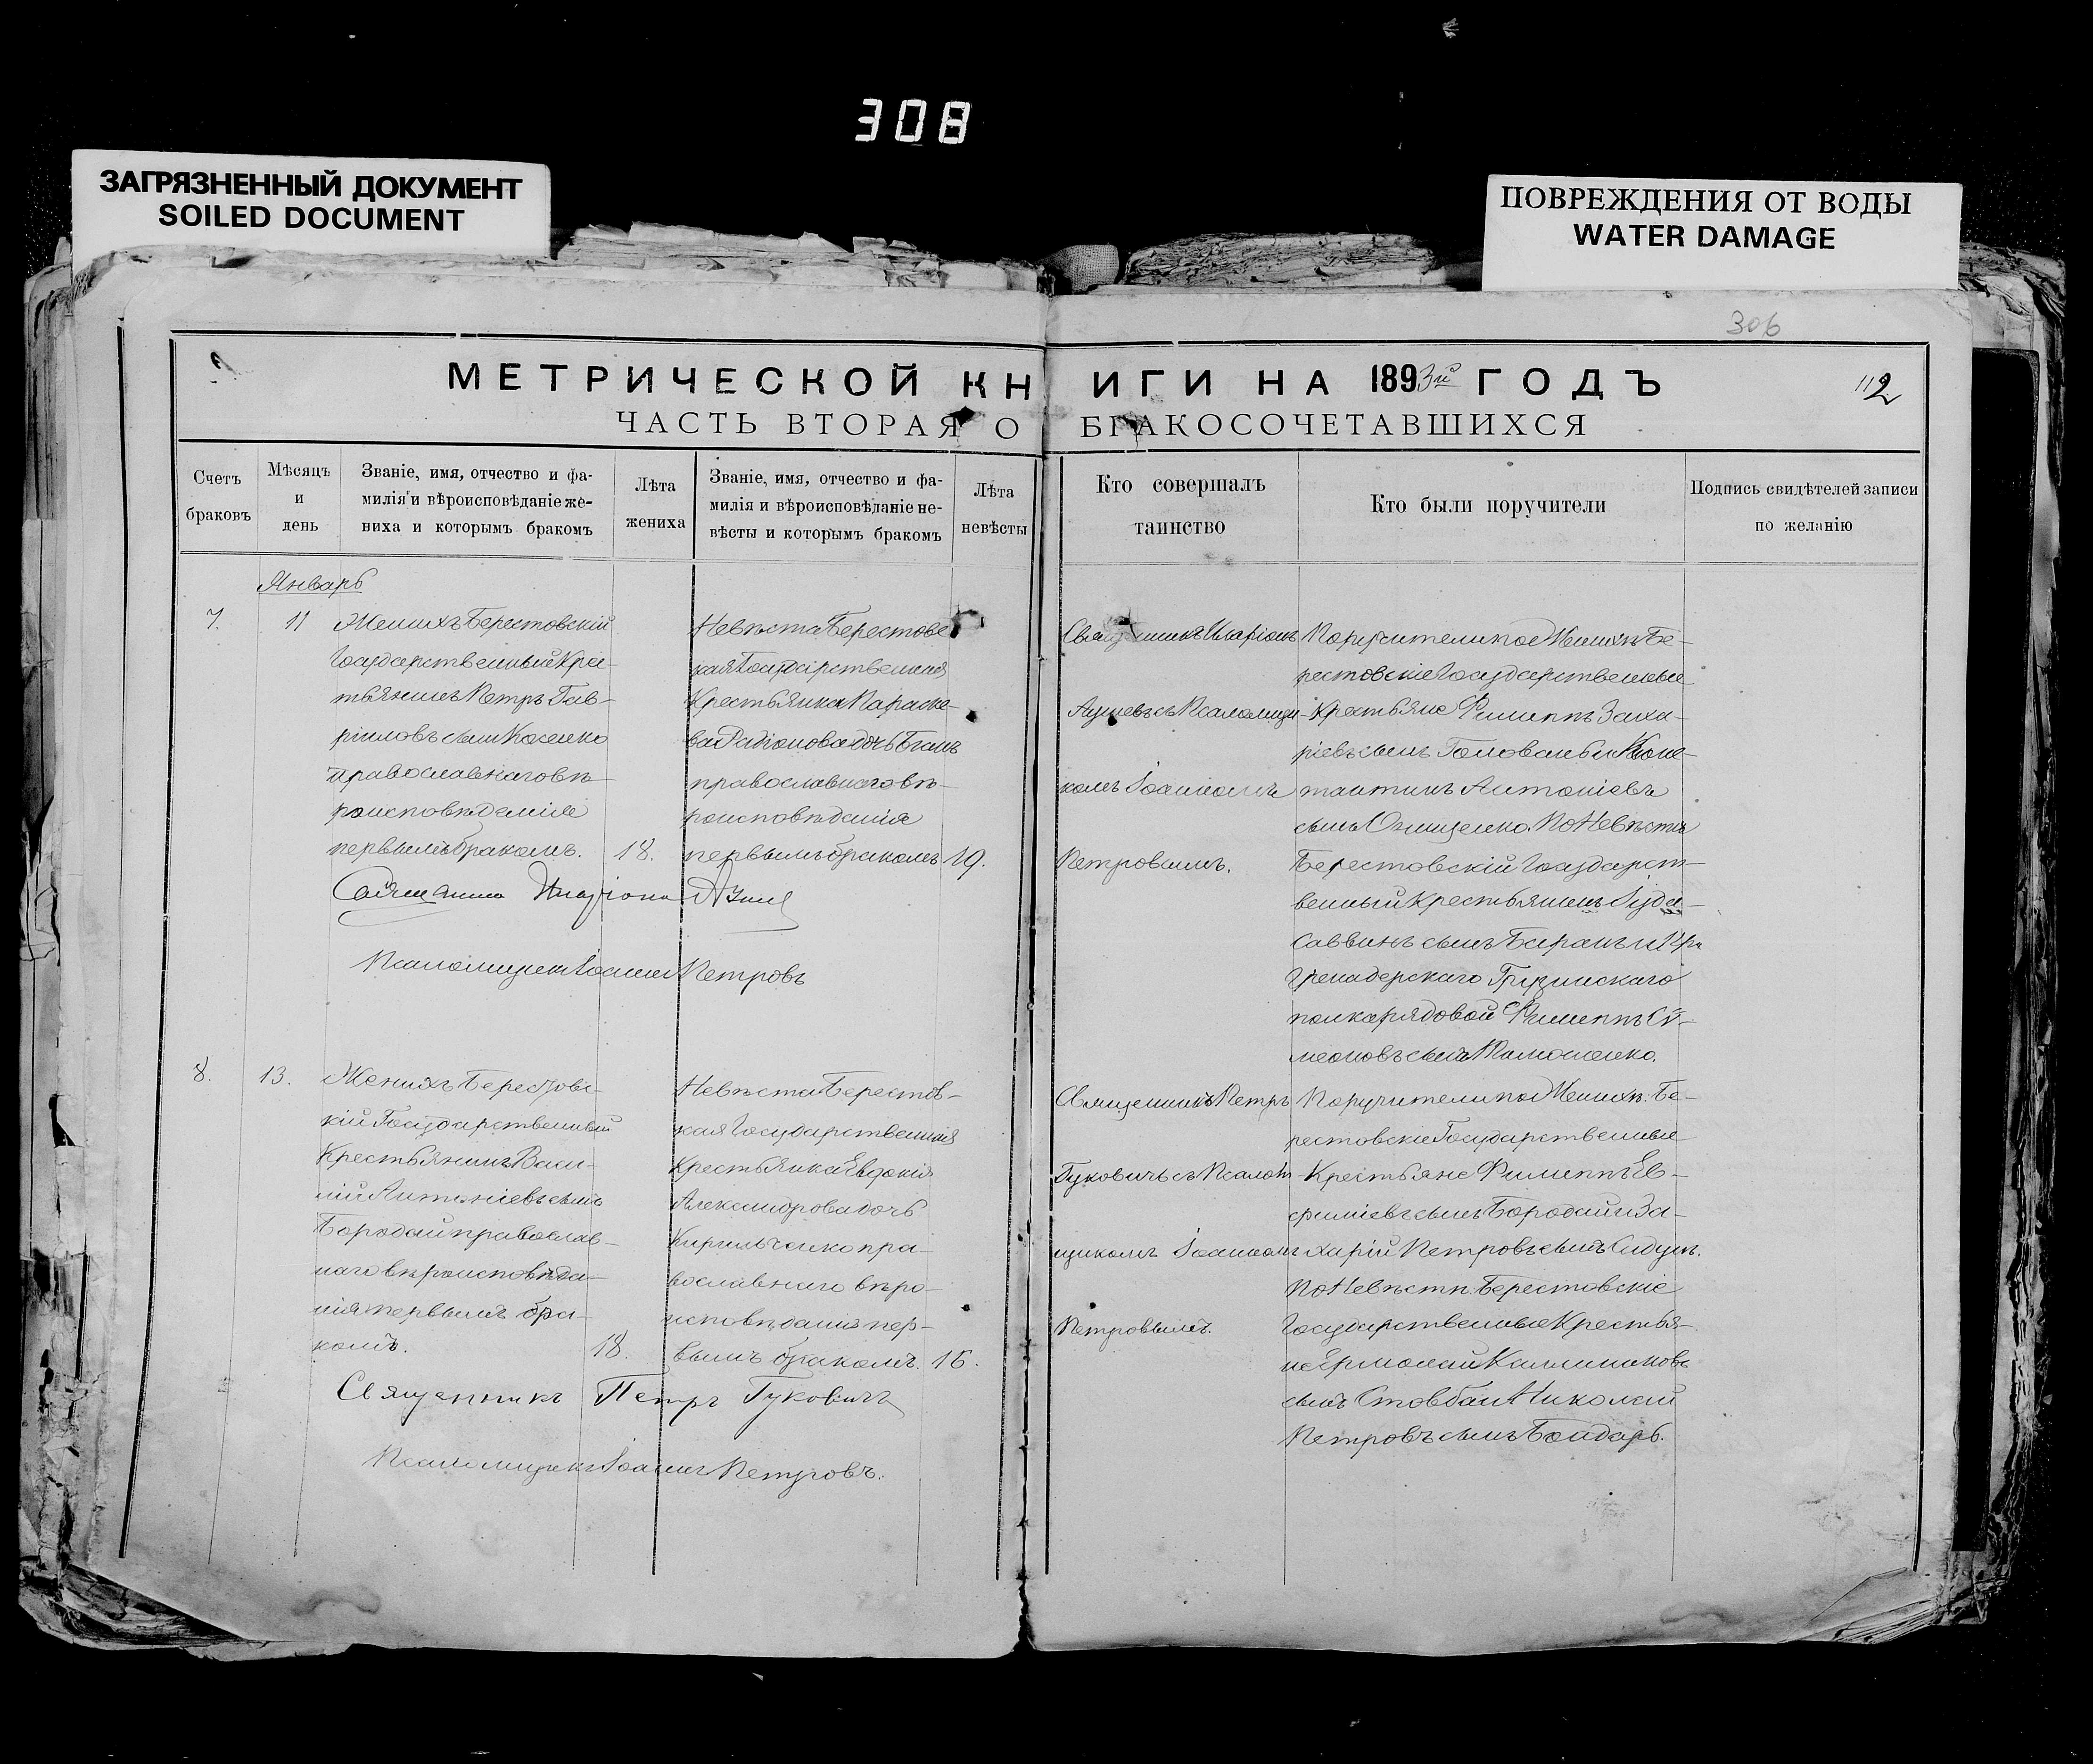 308
ЗАГРЯЗНЕННЫЙ ДОКУМЕНТ
SOILED DOCUMENT
ПОВРЕЖДЕНИЯ ОТ ВОДЫ
WATER DAMAGE
306
МЕТРИЧЕСКОЙ КНИГИ НА 1893й ГОДЪ
112
ЧАСТЬ ВТОРАЯ О БРАКОСОЧЕТАВШИХСЯ
Счетъ
браковъ
Мѣсяцъ
и
день
Званіе, имя, отчество и фа-
милія и вѣроисповѣданіе же-
ниха и которымъ бракомъ
Лѣта
жениха
Званіе, имя, отчество и фа-
милія и вѣроисповѣданіе не-
вѣсты и которымъ бракомъ
Лѣта
невѣсты
Кто совершалъ
таинство
Кто были поручители
Подпись свидѣтелей записи
по желанію
Январь
7.
11
Женихъ Берестовскій
Государственный Крес-
тьянинъ Петръ Гав-
ріиловъ сынъ Косенко
православнаго вѣ-
роисповѣданія
первымъ бракомъ.
18.
Невѣста Берестовс
кая Государственная
Крестьянка Параске-
ва Радіонова дочь
православнаго вѣ-
роисповѣданія
первымъ бракомъ
19.
Священникъ Иларіонъ
съ Псаломщи-
комъ Іоанномъ
Петровымъ.
Поручители по Женихѣ Бе-
рестовскіе Государственные
Крестьяне Филиппъ Заха-
ріевъ сынъ Голованъ и Конс-
тантинъ Антоніевъ
сынъ Онищенко. По Невѣстѣ
Берестовскій Государст-
венный Крестьянинъ Іуда
Саввинъ сынъ Баранъ и
Гренадерскаго Грузинскаго
полка рядовой Филиппъ Сѵ-
меоновъ сынъ
Священникъ Иларіонъ
Псаломщикъ Іоаннъ Петровъ
8.
13.
Женихъ Берестовс-
кій Государственный
Крестьянинъ Васи-
лій Антоніевъ сынъ
Бородай православ-
наго вѣроисповѣда-
нія первымъ бра-
комъ.
18.
Невѣста Берестовс-
кая Государственная
Крестьянка Евдокія
Александрова дочь
Кирильченко пра-
вославнаго вѣро-
исповѣданія пер-
вымъ бракомъ.
16.
Священникъ Петръ
Гуковичъ съ Псалом
щикомъ Іоанномъ
Петровымъ.
Поручители по Женихѣ: Бе-
рестовскіе Государственные
Крестьяне Филиппъ Ев-
фиміевъ сынъ Бородай и За-
харій Петровъ сынъ
По Невѣстѣ: Берестовскіе
Государственные Крестья-
не Ермолай Каллиниковъ
сынъ Стовба и Николай
Петровъ сынъ Бондарь.
Священникъ Петръ Гуковичъ
Псаломщикъ Іоаннъ Петровъ.